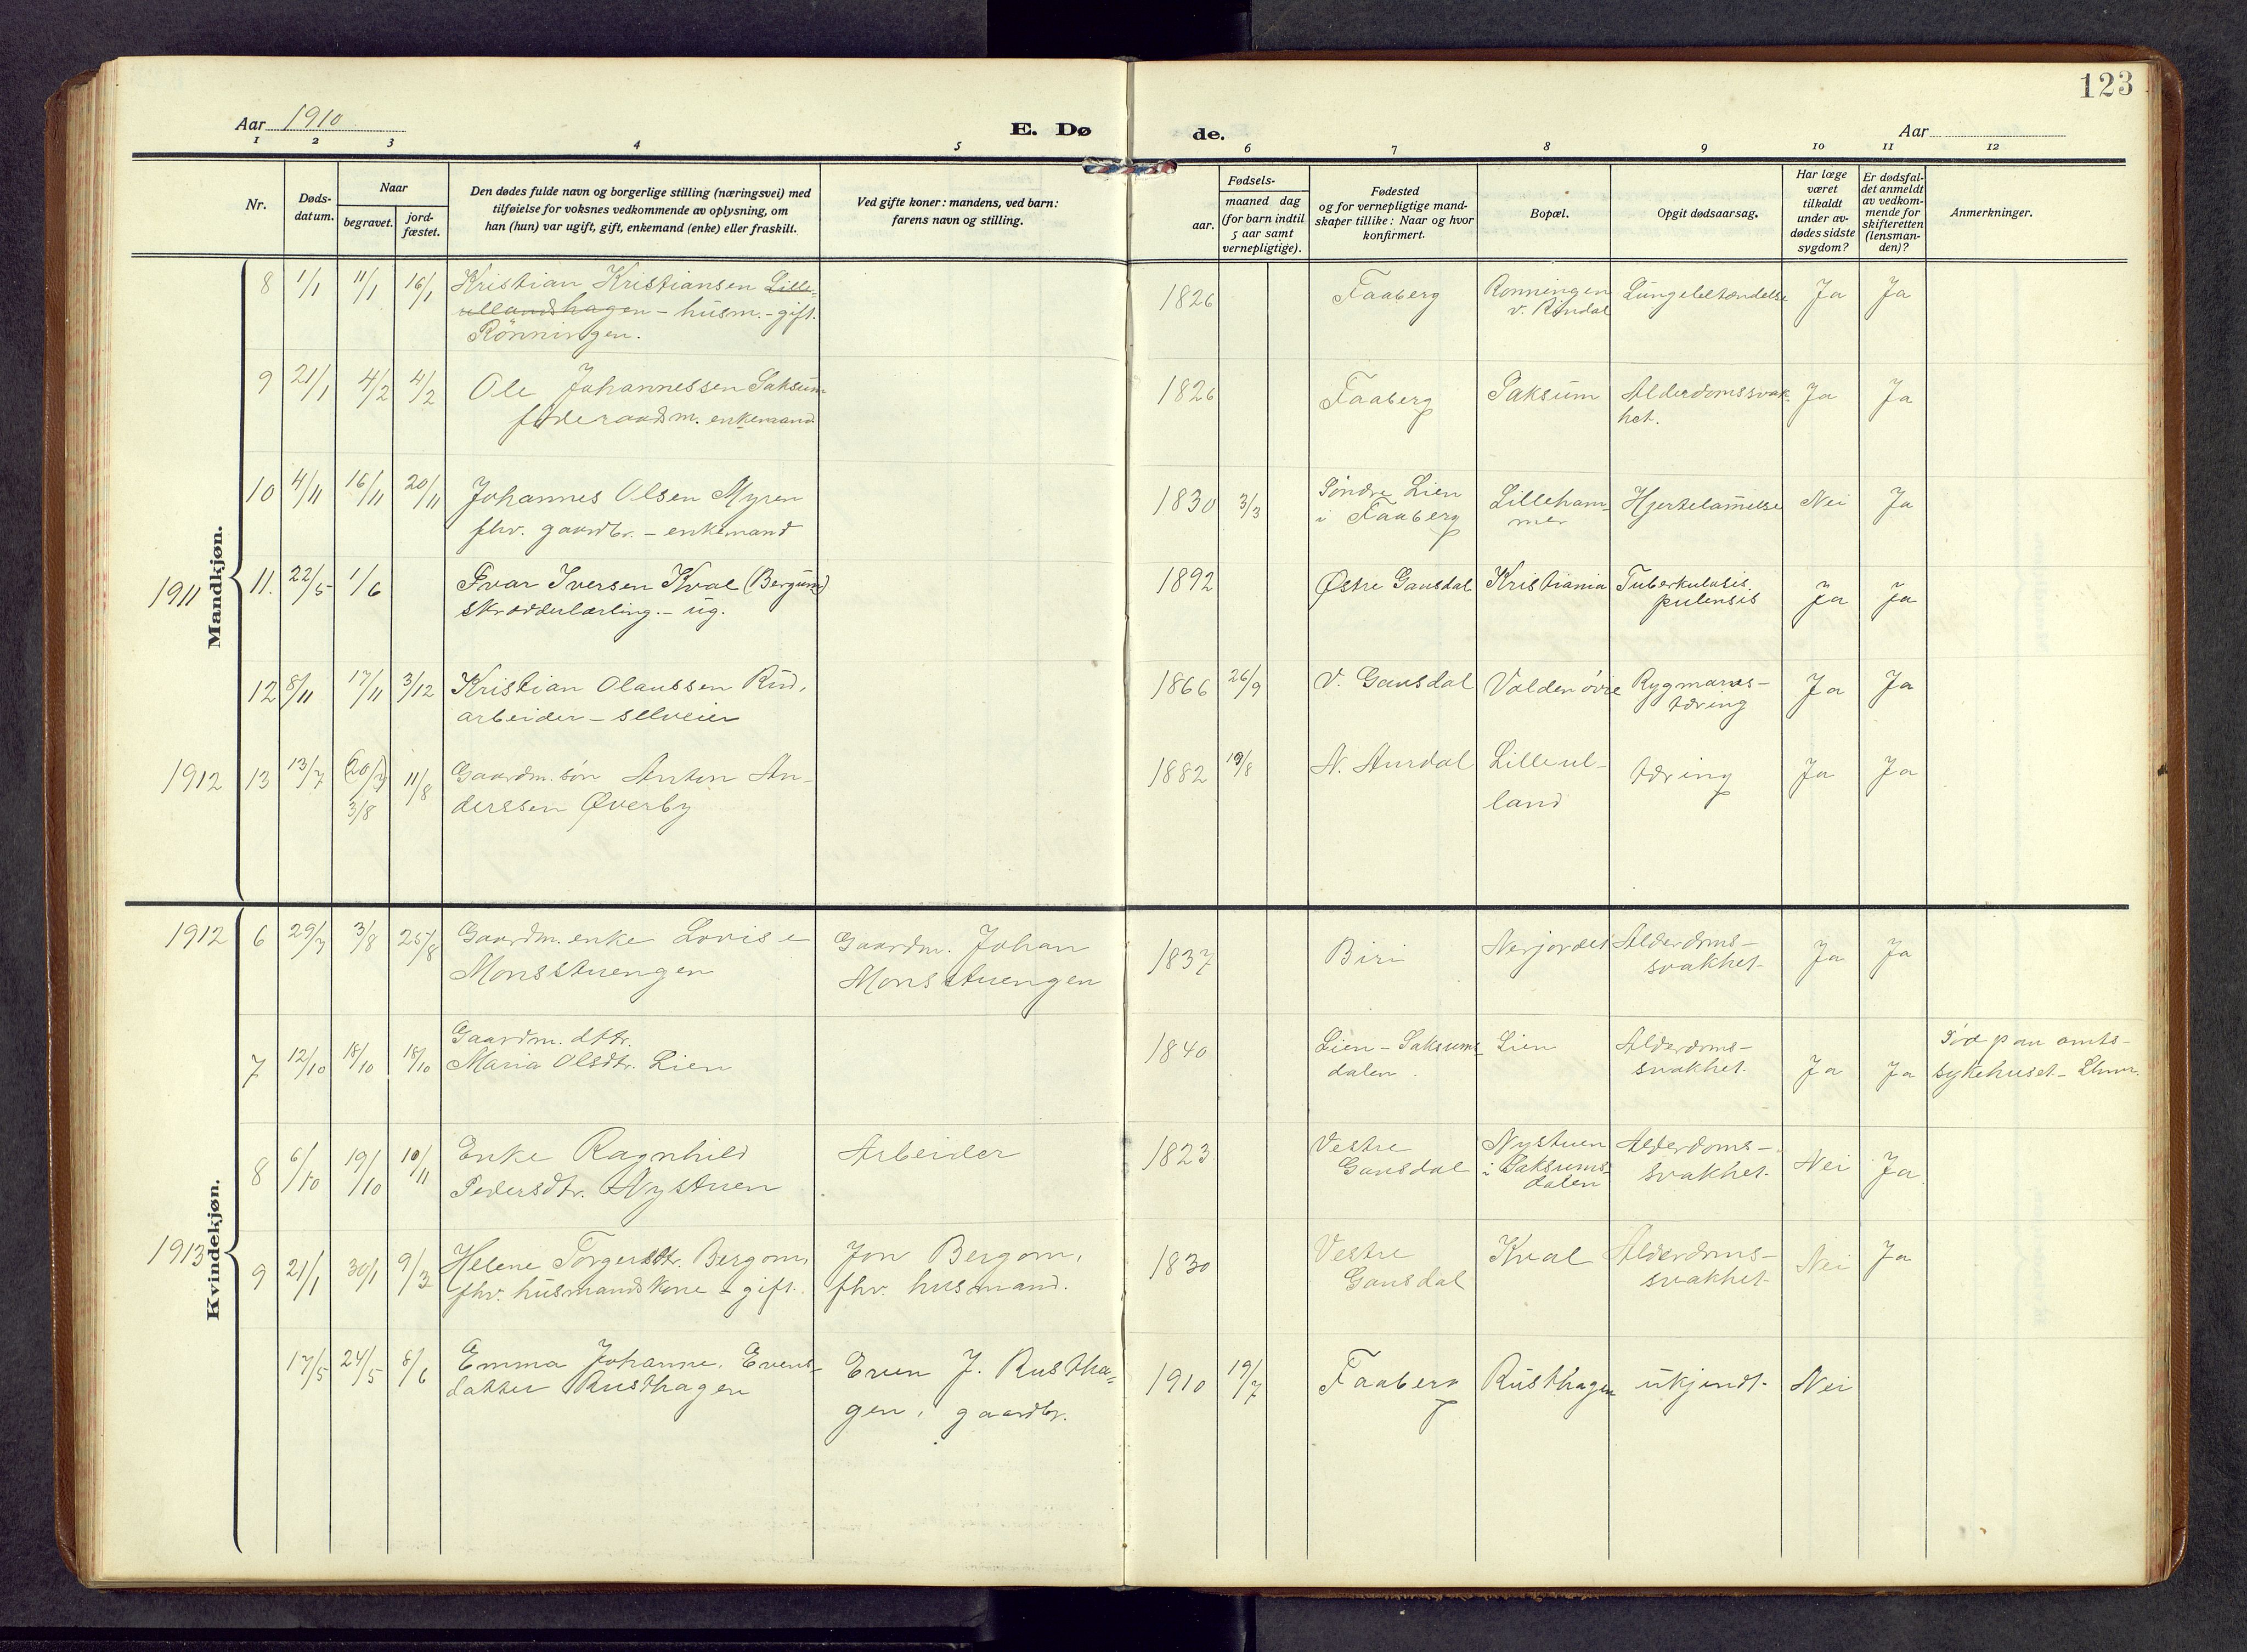 123
Aar 1910
E. Dø de.
Aar
1 2 3 4 5 6 7 8 9 10 11 12
Nr.
Døds-
datum.
Naar
begravet.
jord-
fæstet.
Den dødes fulde navn og borgerlige stilling (næringsvei) med
tilføielse for voksnes vedkommende av oplysning, om
han (hun) var ugift, gift, enkemand (enke) eller fraskilt.
Ved gifte koner: mandens, ved barn:
farens navn og stilling.
Fødsels-
aar.
maaned dag
(for barn indtil
5 aar samt
vernepligtige).
Fødested
og for vernepligtige mand-
skaper tillike: Naar og hvor
konfirmert.
Bopæl.
Opgit dødsaarsag.
Har læge
været
tilkaldt
under av-
dødes sidste
sygdom?
Er dødsfal-
det anmeldt
av vedkom-
mende for
skifteretten
(lensman-
den)?
Anmerkninger.
Mandkjøn.
8 1/1 11/1 16/1 Kristian Kristiansen Lille-
ullandshagen - husm. - gift.
Rönningen.
1826 Faaberg Rønningen
v. Rindal
Lungebetændelse Ja Ja
9 21/1 4/2 4/2 Ole Johannessen Saksum
føderaadsm. enkemand
1826 Faaberg Saksum Alderdomssvak-
het.
Ja Ja
10 4/11 16/11 20/11 Johannes Olsen Myren
fhv. gaardbr. - enkemand
1830 3/3 Søndre Lien
i Faaberg
Lilleham-
mer
Hjertelammelse Nei Ja
1911 11. 22/5 1/6 Ivar Iversen Kval (Bergum)
skrædderlærling. - ug.
1892 Østre Gausdal Kristiania Tuberkulosis
pulensis
Ja Ja
12 8/11 17/11 3/12 Kristian Olaussen Rud,
arbeider - selveier
1866 26/9 V. Gausdal Volden övre Rygmarvs-
tæring
Ja Ja
1912 13 13/7 (20/7) 3/8 11/8 Gaardm. søn Anton An-
derssen Øverby
1882 19/8 N. Aurdal Lilleul-
land
tæring Ja Ja
Kvindekjøn.
1912 6 29/7 3/8 25/8 Gaardm. enke Lovise
Monsstuengen
Gaardm. Johan
Monsstuengen
1837 Biri Nerjordet Alderdoms-
svakhet
Ja Ja
7 12/10 18/10 18/10 Gaardm. dttr.
Maria Olsdtr. Lien
1840 Lien - Saksums-
dalen.
Lien Alderdoms-
svakhet.
Ja Ja Död paa amts-
sykehuset - Lhmr.
8 6/10 19/10 10/11 Enke Ragnhild
Pedersdtr. Nystuen
Arbeider
1823 Vestre
Gausdal
Nystuen
i Saksums-
dalen
Alderdoms-
svakhet.
Nei Ja
1913 9 21/1 30/1 9/3 Helene Torgersdtr. Bergom,
fhv. husmandskone - gift.
Jon Bergom,
fhv. husmand.
1830 Vestre
Gausdal
Kval Alderdoms-
svakhet
Nei Ja
17/5 24/5 8/6 Emma Johanne Evens-
datter Rusthagen
Even J. Rustha-
gen, gaardbr.
1910 19/7 Faaberg Rusthagen ukjendt - Nei